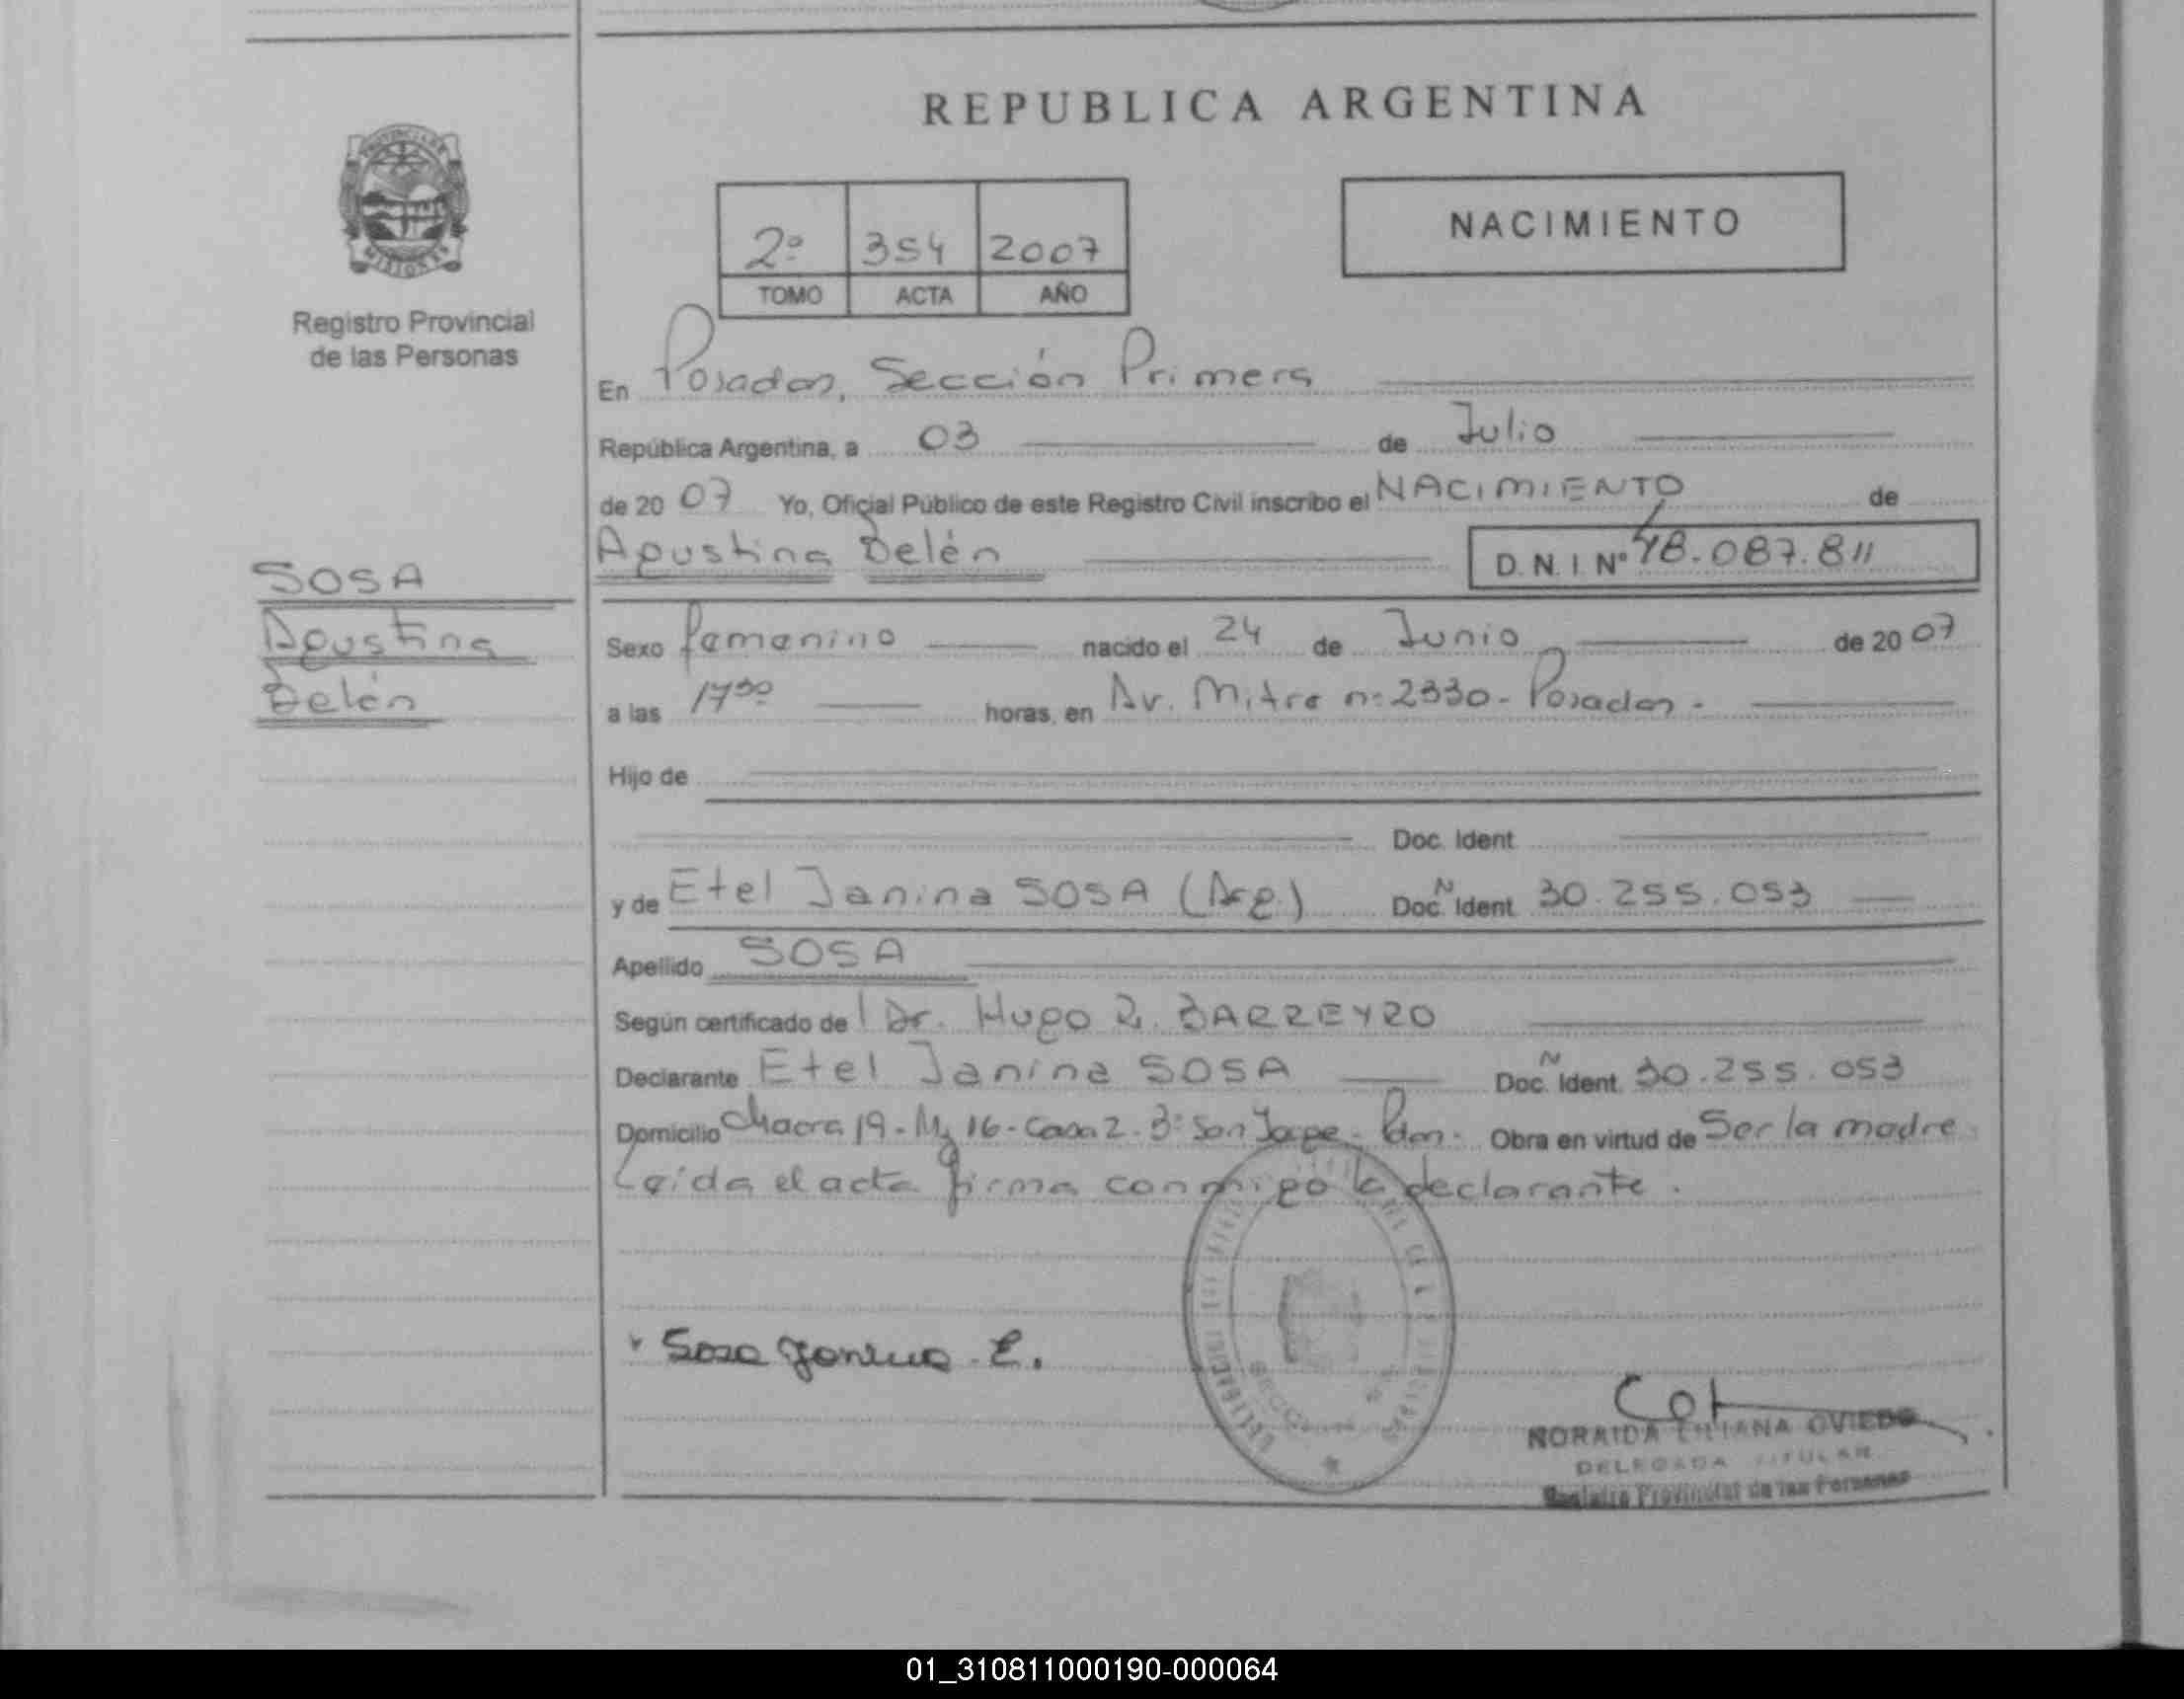 REPUBLICA ARGENTINA
PROVINCIA DE MISIONES
Registro Provincial
de las Personas
2º 354 2007
TOMO ACTA AÑO
NACIMIENTO
En Posadas, Sección Primera
República Argentina, a 03 de Julio
de 2007 Yo, Oficial Público de este Registro Civil inscribo el NACIMIENTO de
Agustina Belén D.N.I. Nº 48.087.811
SOSA
Agustina
Belén
Sexo femenino nacido el 24 de Junio de 2007
a las 17³⁰ horas, en Av. Mitre nº 2330 - Posadas.
Hijo de
Doc. Ident
y de Etel Janina SOSA (Arg) Doc. N Ident 30.255.053
Apellido SOSA
Según certificado de l Dr. Hugo R. BARREYRO
Declarante Etel Janina SOSA Doc. N Ident. 30.255.053
Domicilio Chacra 19 - Mz 16 - Casa 2 - Bº San Jorge - Pdas. Obra en virtud de Ser la madre
Leída el acta firma conmigo la declarante.
Sosa Janina E.
NORAIDA LILIANA OVIEDO
DELEGADA TITULAR
Registro Provincial de las Personas
01_310811000190-000064